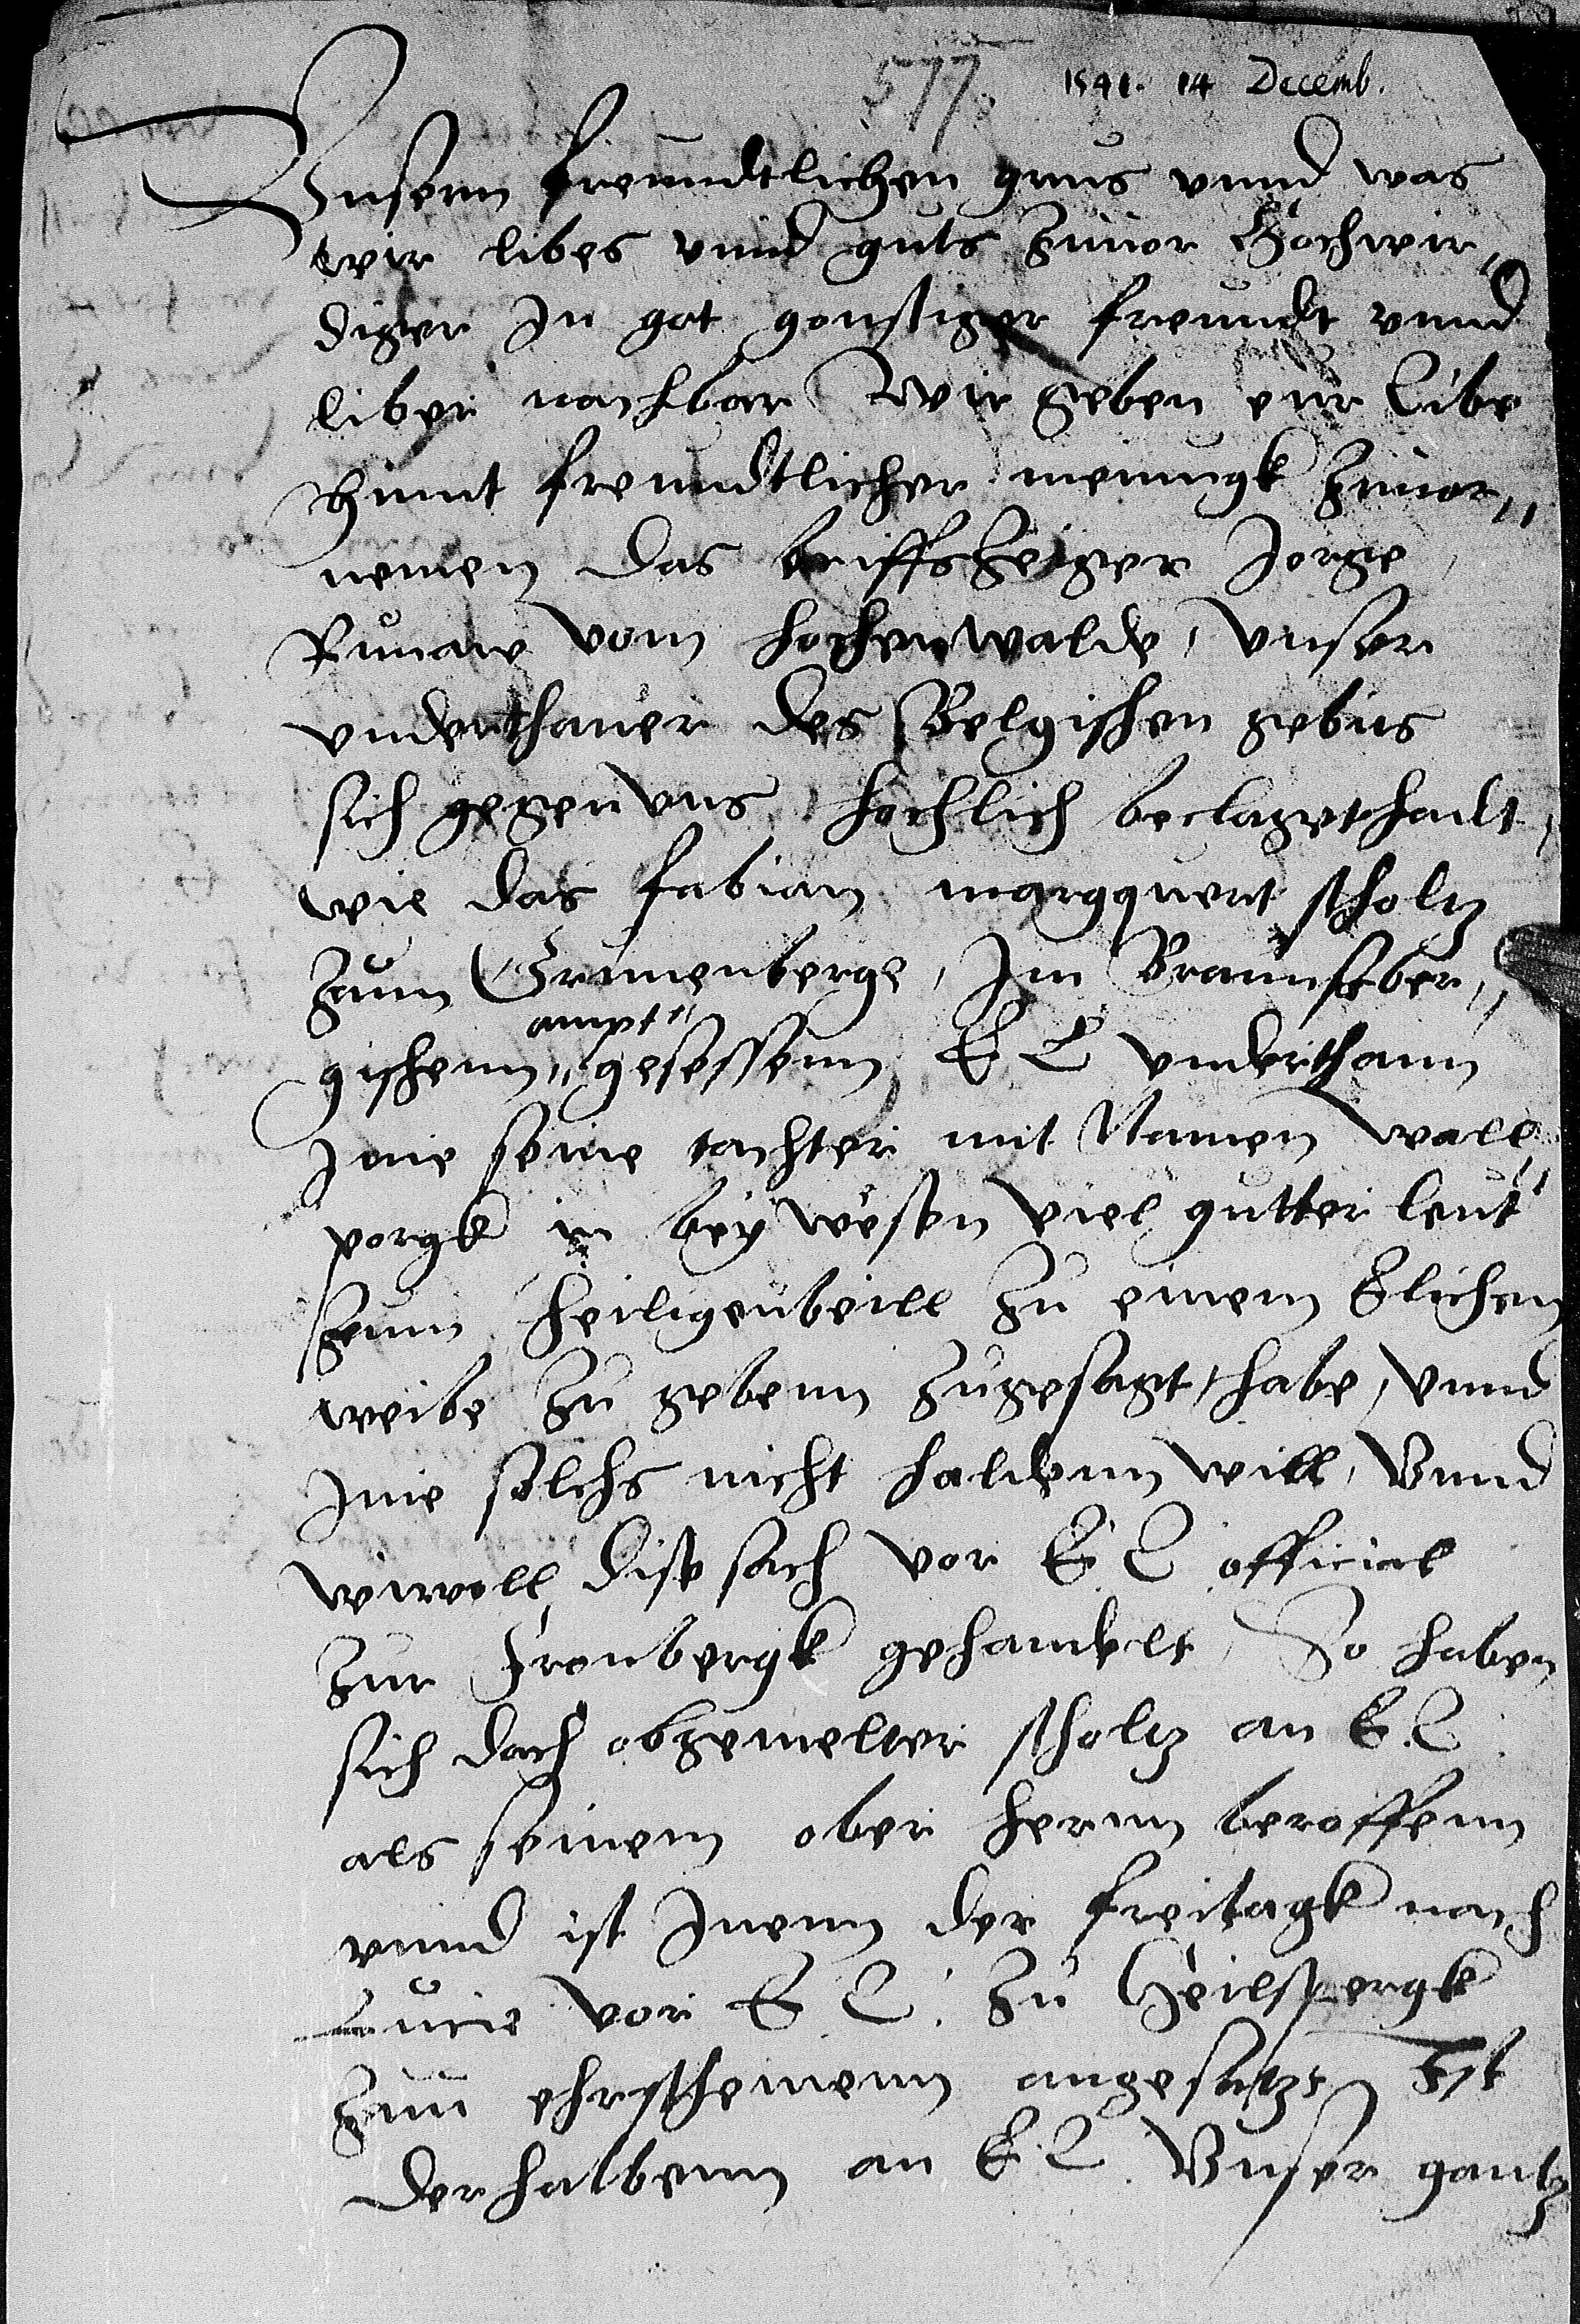 577.
1541. 14 Decemb.
Vnsern freundtlichen grus vnnd was
wir libes vnnd guts zuuor Hochwir„
diger In got gonstiger freundt vnnd
liber nachbar Wir geben eur Libe
himit freundtlicher meinungk zuuor„
nemen das briffszeiger Jorge
Kunaw vom hochenwalde, vnser
vnderthaner des Belgischen gebits
sich gegen vns hochlich beclaget hadt,
wie das fabian marqquert scholtz
zum Grunenberge, Im Braunsber„
ampt
gischenn„ gesessenn E L vnderthann
Ime seine tochter mit Namen wall„
porgk in beywesen viel gutter leut
zum heiligenbeill zu einem Elichen
weibe zu gebenn zugesagt, habe, vnnd
Ime solchs nicht haldenn will, Vnnd
wiwoll dise sach vor E. L. official
zur Fronbergk gehandelt, So haben
sich doch obgemelter scholtz an E. L.
als seinem ober hernn beroffenn
vnnd ist Inenn der freitagk nach
Lucie vor E L. zu Heilspergk
zum ehrscheinenn angesatzt Ist
derhalbenn an E. L. Vnser gantz